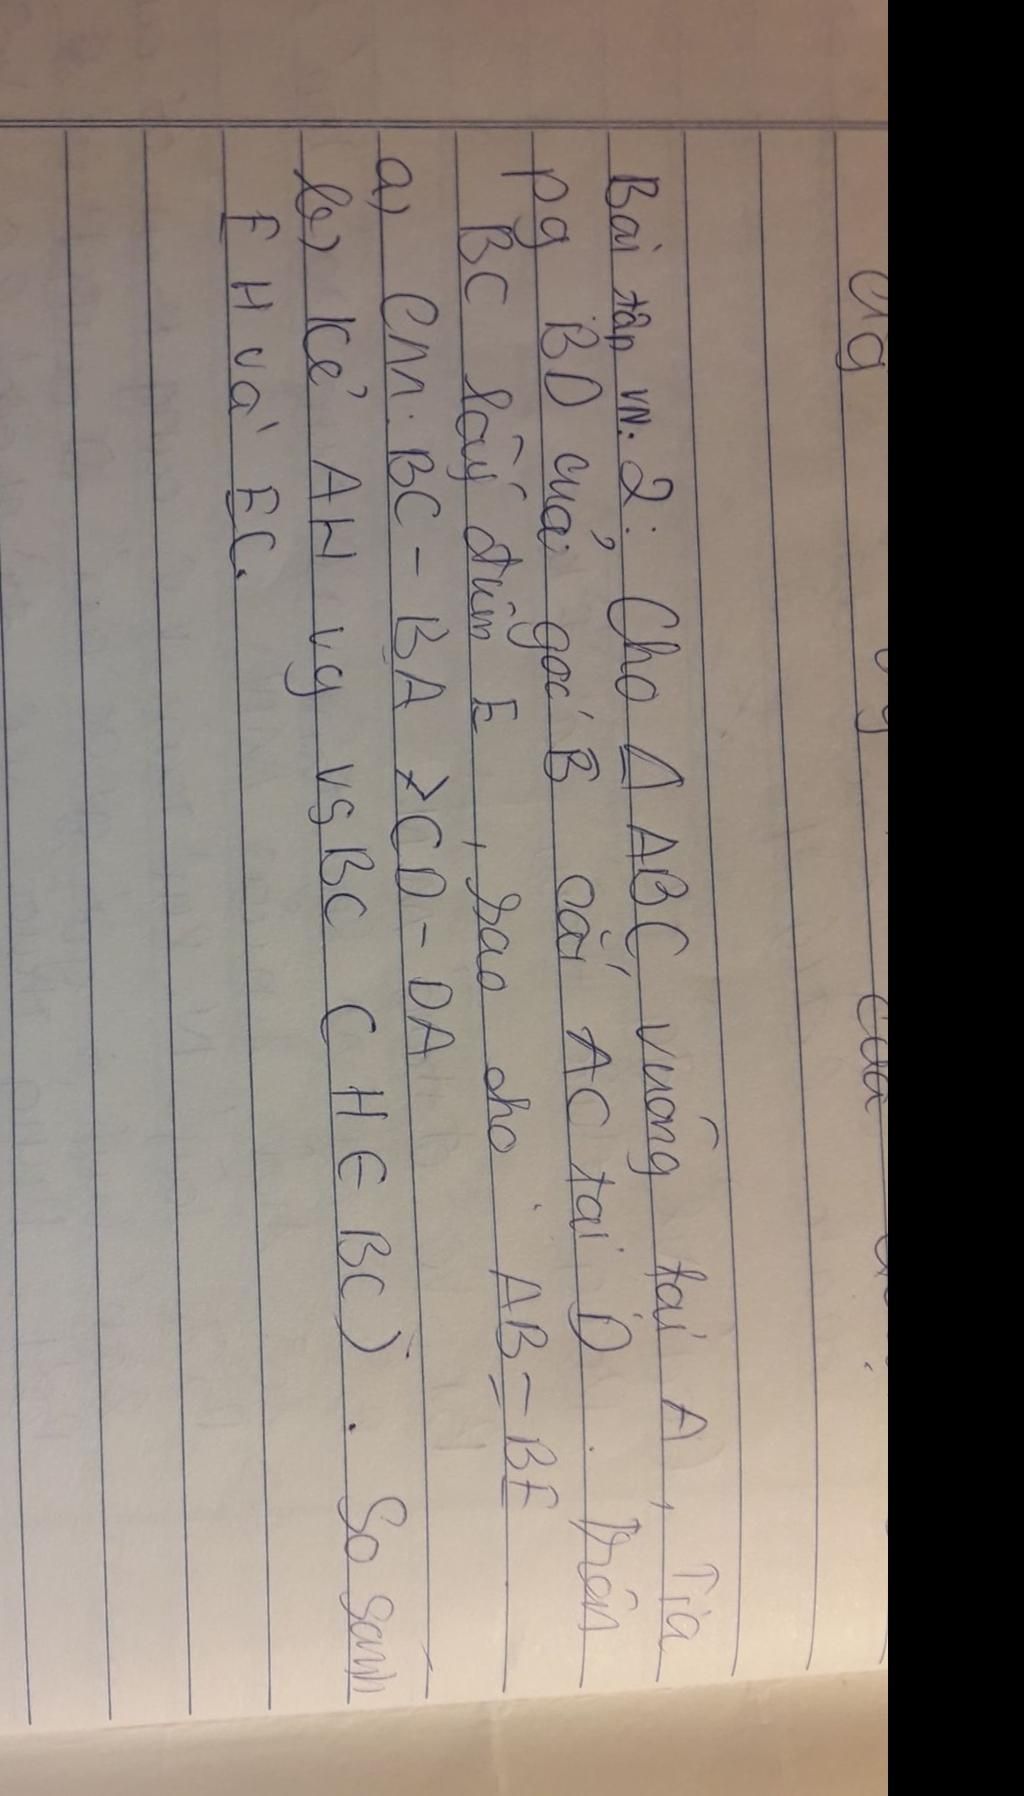 Bài tập VN. 2: Cho Δ ABC vuông tại A, Tia
pg BD của góc B cắt AC tại D. Trên
BC lấy điểm E, sao cho AB = BE
a) CM: BC - BA > CD - DA
b) Kẻ AH vg vs BC ( H ∈ BC). So sánh
EH và EC.